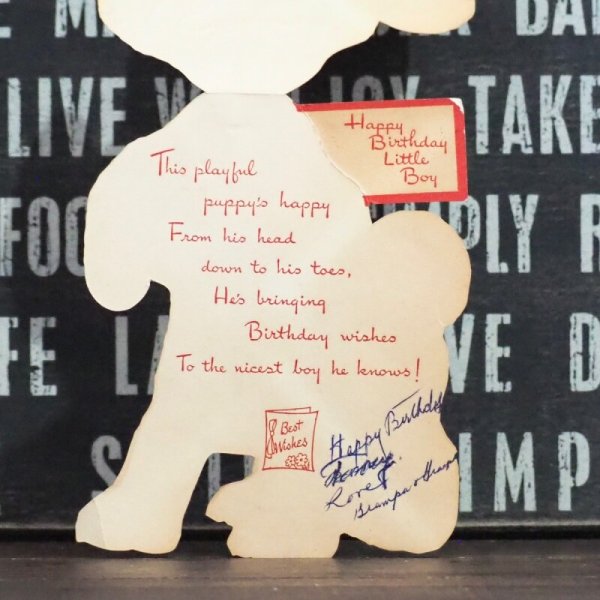 LIVE W JOY TAKE
FOO PLY R
FE LA VE D
S IMP
Happy
Birthday
Little
Boy
This playful
puppy's happy
From his head
down to his toes,
He's bringing
Birthday wishes
To the nicest boy he knows!
Best
Wishes
Happy Birthday
Love
Grampa &